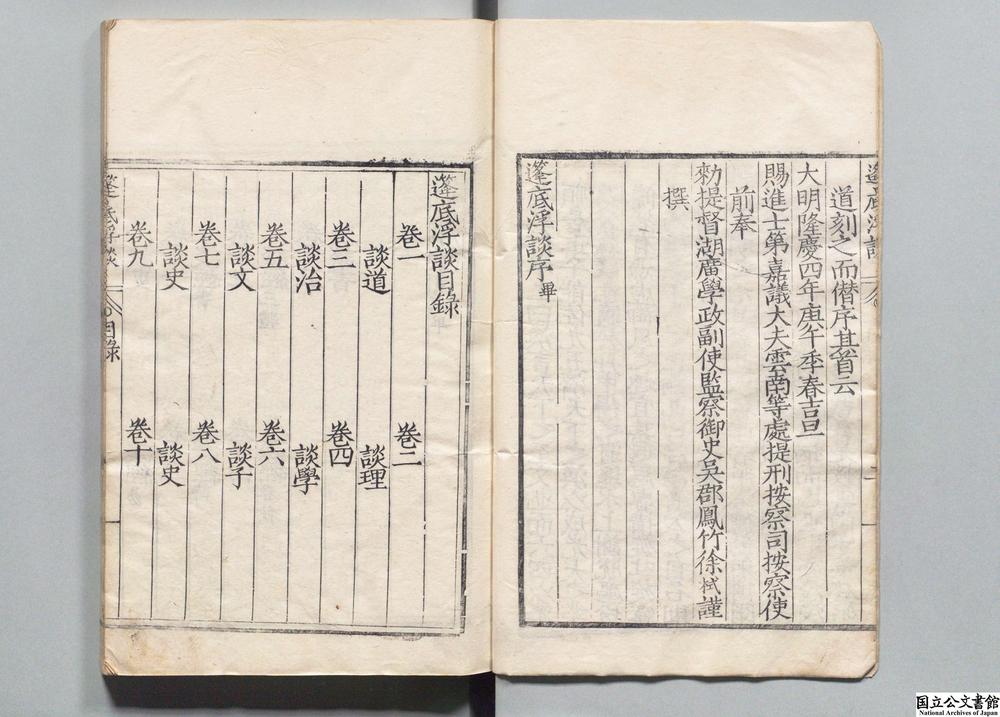 篷底浮談
道刻之而僭序其首云
大明隆慶四年庚午季春吉旦
賜進士第嘉議大夫雲南等處提刑按察司按察使
前奉
勑提督湖廣學政副使監察御史吳郡鳳竹徐栻謹
撰
篷底浮談序畢
篷底浮談目錄
卷一 卷二
談道 談理
卷三 卷四
談治 談學
卷五 卷六
談文 談子
卷七 卷八
談史 談史
卷九 卷十
篷底浮談 目錄
国立公文書館
National Archives of Japan